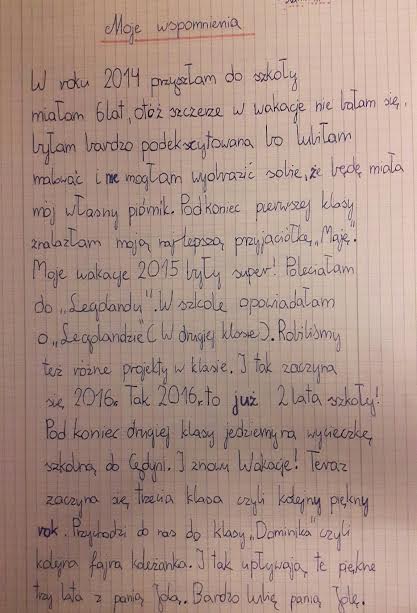 Moje wspomnienia
W roku 2014 przyszłam do szkoły
miałam 6 lat, otóż szczerze w wakacje nie bałam się.
byłam bardzo podekscytowana bo lubiłam
malować i nie mogłam wyobrazić sobie, że będę miała
mój własny piórnik. Pod koniec pierwszej klasy
znalazłam moją najlepszą przyjaciółkę „Maję".
Moje wakacje 2015 były super! Poleciałam
do „Legolandu". W szkole opowiadałam
o „Legolandzie (W drugiej klasie). Robiliśmy
też różne projekty w klasie. I tak zaczyna
się 2016r. Tak 2016r. to już 2 lata szkoły!
Pod koniec drugiej klasy jedziemy na wycieczkę
szkolną do Gdyni. I znowu Wakacje! Teraz
zaczyna się trzecia klasa czyli kolejny piękny
rok. Przychodzi do nas do klasy „Dominika" czyli
kolejna fajna koleżanka. I tak upływają te piękne
trzy lata z panią Jolą. Bardzo lubię panią Jolę.